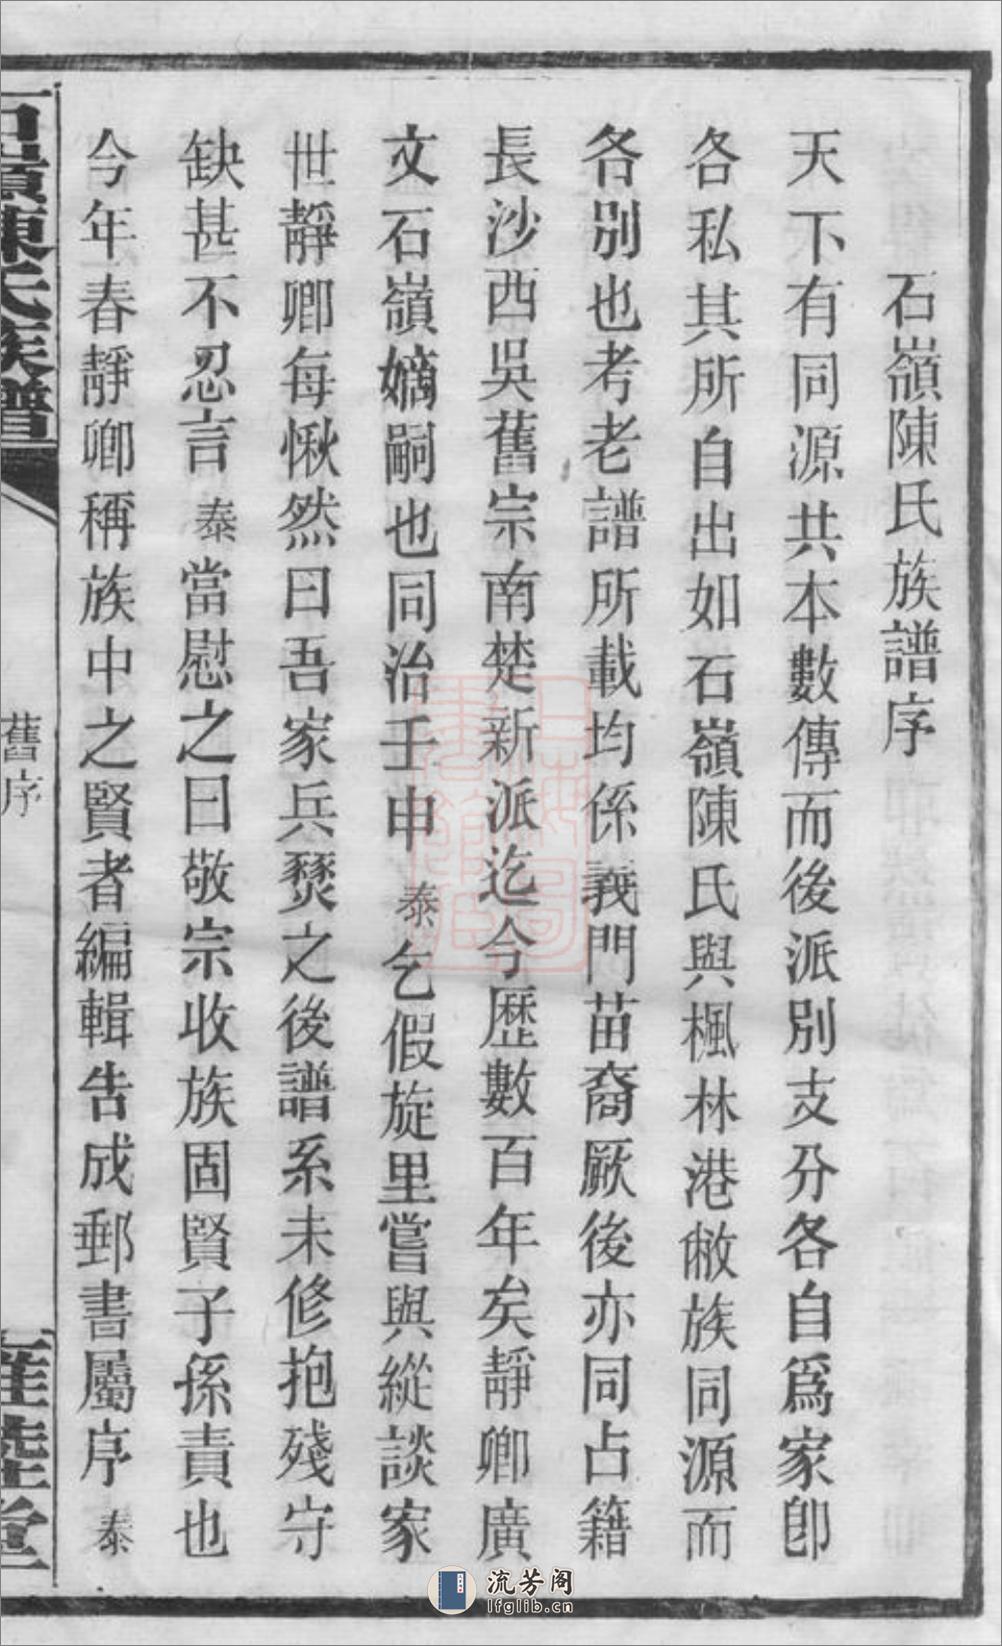 石嶺陳氏族譜序
天下有同源共本數傳而後派別支分各自爲家卽
各私其所自出如石嶺陳氏與楓林港敝族同源而
各別也考老譜所載均係義門苗裔厥後亦同占籍
長沙西吳舊宗南楚新派迄今歷數百年矣靜卿廣
文石嶺嫡嗣也同治壬申泰乞假旋里嘗與縱談家
世靜卿每愀然曰吾家兵燹之後譜系未修抱殘守
缺甚不忍言泰當慰之曰敬宗收族固賢子孫責也
今年春靜卿稱族中之賢者編輯告成郵書屬序泰
石嶺陳氏族譜
舊序
流芳阁
lfglib.cn